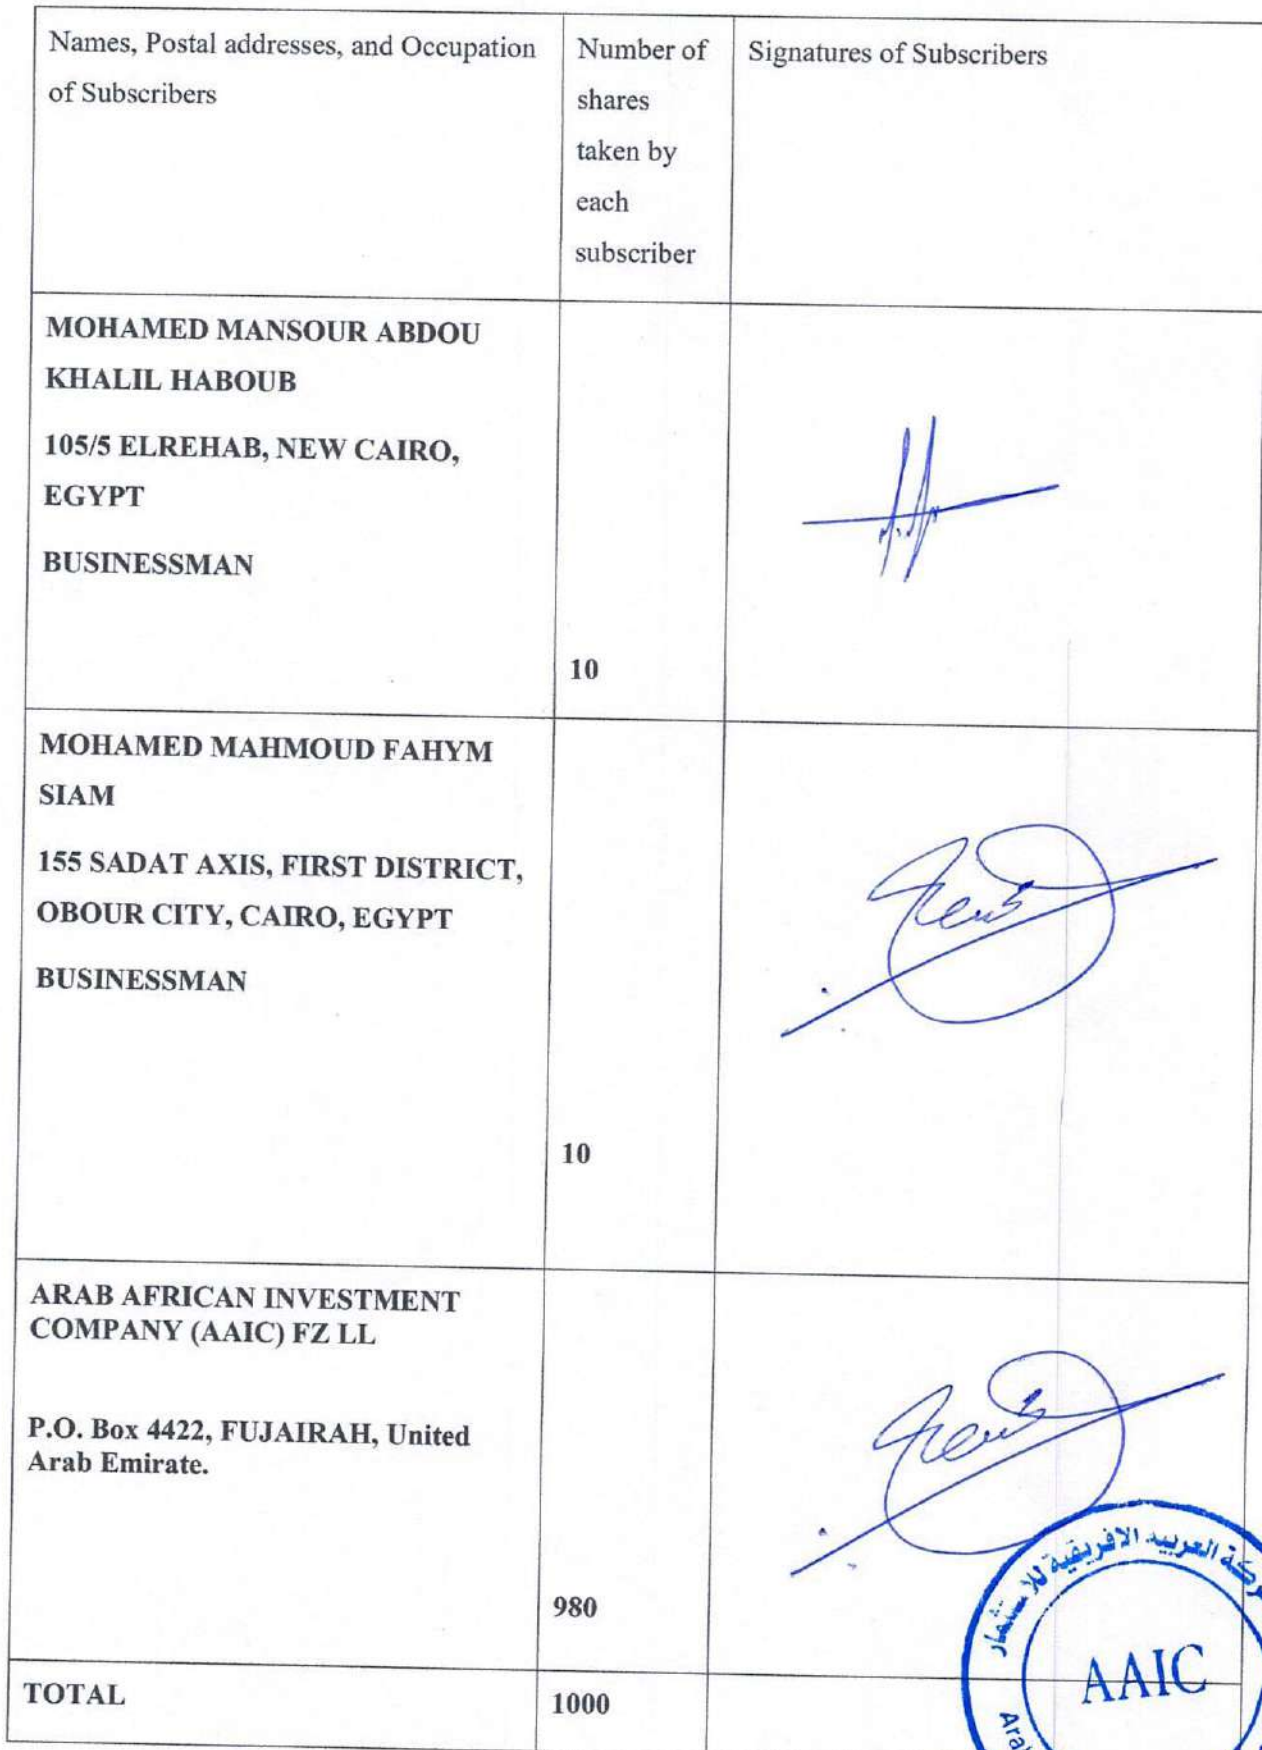 Names, Postal addresses, and Occupation
of Subscribers
Number of
shares
taken by
each
subscriber
Signatures of Subscribers
MOHAMED MANSOUR ABDOU
KHALIL HABOUB
105/5 ELREHAB, NEW CAIRO,
EGYPT
BUSINESSMAN
10
MOHAMED MAHMOUD FAHYM
SIAM
155 SADAT AXIS, FIRST DISTRICT,
OBOUR CITY, CAIRO, EGYPT
BUSINESSMAN
10
ARAB AFRICAN INVESTMENT
COMPANY (AAIC) FZ LL
P.O. Box 4422, FUJAIRAH, United
Arab Emirate.
980
العربيه الافريقية للاستثمار
AAIC
TOTAL
1000